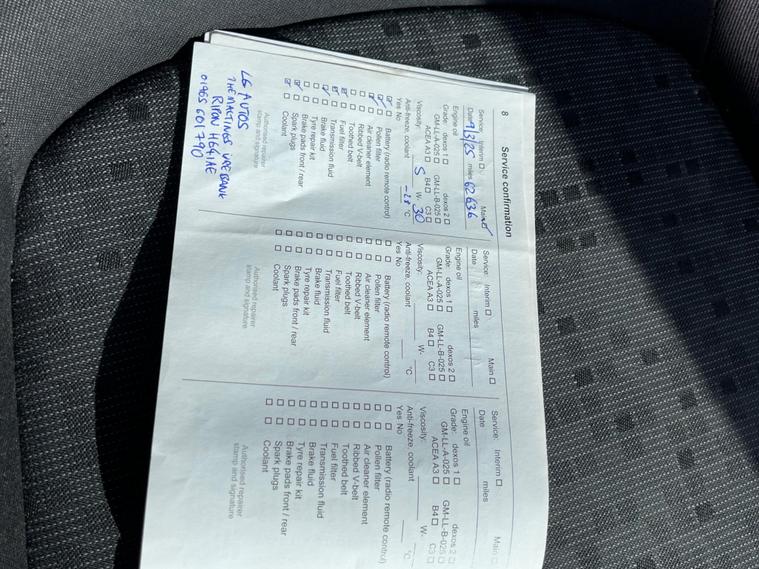 8 Service confirmation
Service: Interim ☐ Main ☑
Date 9/3/25 miles 62636
Engine oil
Grade: dexos 1 ☐ dexos 2 ☐
GM-LL-A-025 ☐ GM-LL-B-025 ☐
ACEA A3 ☐ B4 ☐ C3 ☐
Viscosity: 5 W- 30
Anti-freeze, coolant °C
Yes No
Battery (radio remote control)
Pollen filter
Air cleaner element
Ribbed V-belt
Toothed belt
Fuel filter
Transmission fluid
Brake fluid
Tyre repair kit
Brake pads front / rear
Spark plugs
Coolant
Authorised repairer
stamp and signature
LG AUTOS
THE MALTINGS URE BANK
RIPON HG4 1AE
01765 601790
Service: Interim ☐ Main ☐
Date miles
Engine oil
Grade: dexos 1 ☐ dexos 2 ☐
GM-LL-A-025 ☐ GM-LL-B-025 ☐
ACEA A3 ☐ B4 ☐ C3 ☐
Viscosity: W-
Anti-freeze, coolant °C
Yes No
Battery (radio remote control)
Pollen filter
Air cleaner element
Ribbed V-belt
Toothed belt
Fuel filter
Transmission fluid
Brake fluid
Tyre repair kit
Brake pads front / rear
Spark plugs
Coolant
Authorised repairer
stamp and signature
Service: Interim ☐ Main ☐
Date miles
Engine oil
Grade: dexos 1 ☐ dexos 2 ☐
GM-LL-A-025 ☐ GM-LL-B-025 ☐
ACEA A3 ☐ B4 ☐ C3 ☐
Viscosity: W-
Anti-freeze, coolant °C
Yes No
Battery (radio remote control)
Pollen filter
Air cleaner element
Ribbed V-belt
Toothed belt
Fuel filter
Transmission fluid
Brake fluid
Tyre repair kit
Brake pads front / rear
Spark plugs
Coolant
Authorised repairer
stamp and signature